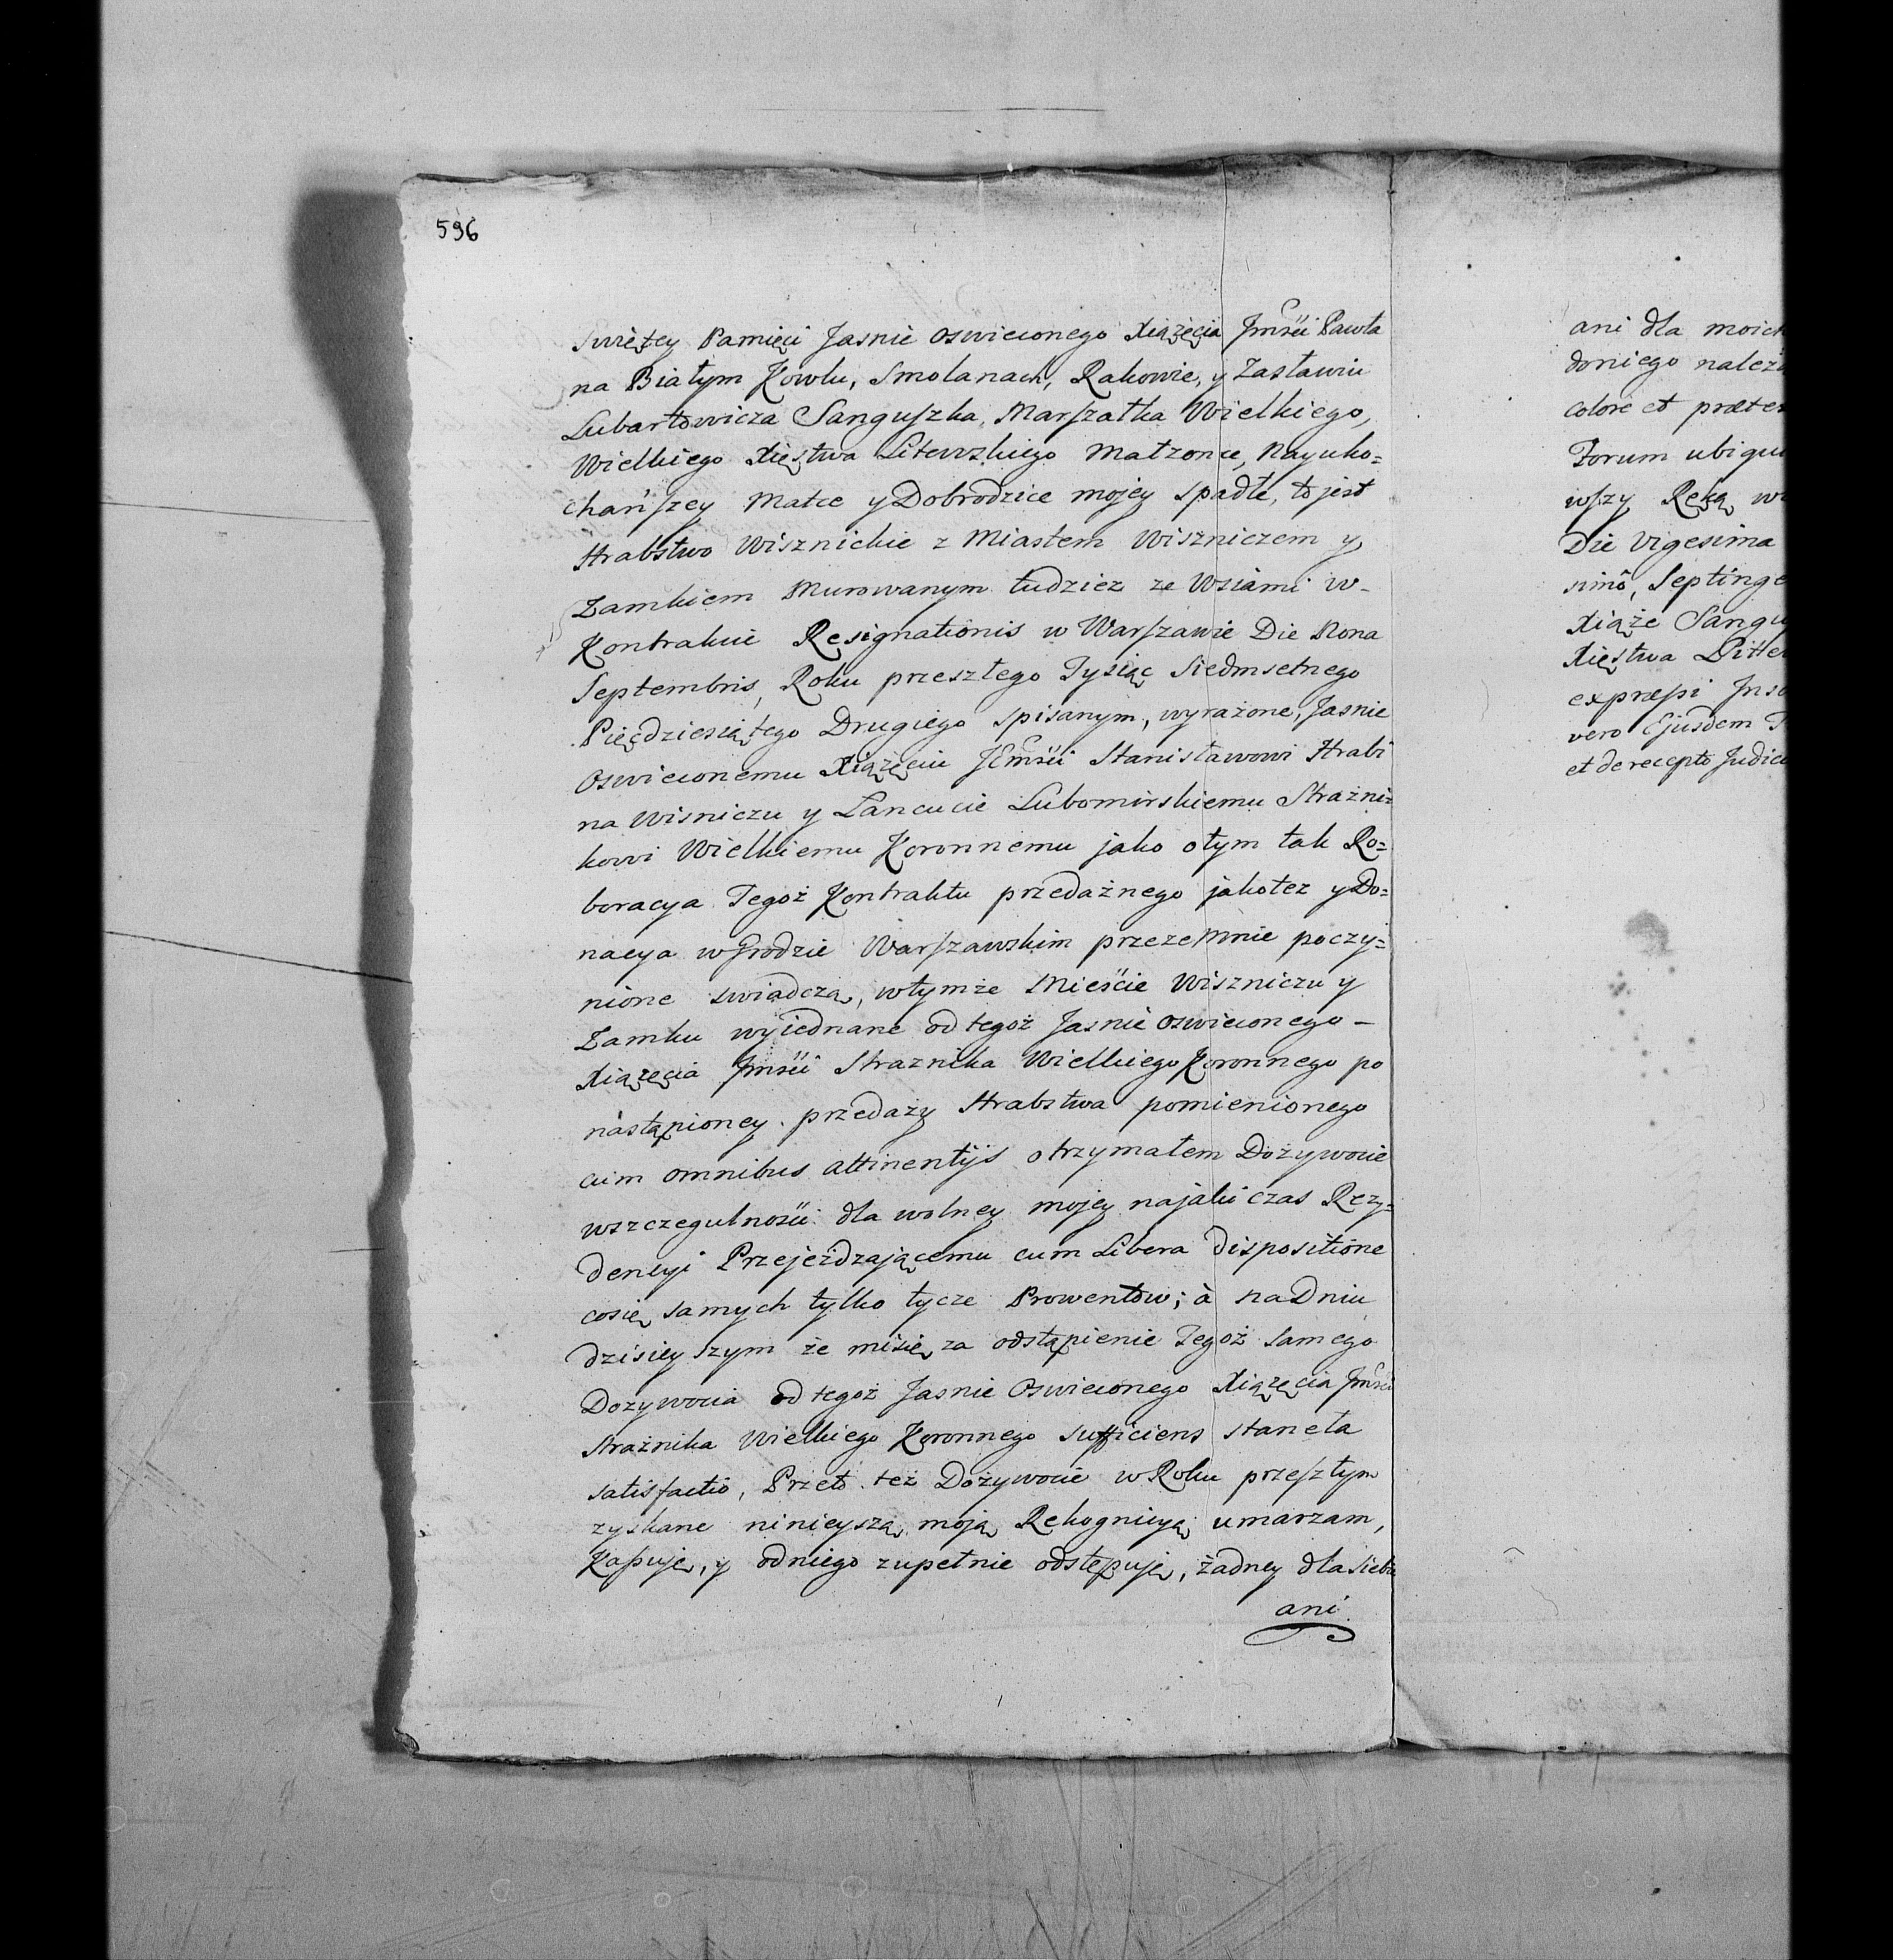 596
Swiętey Pamięci Jasnie Oswieconego Xiązęcia Jmści Pawła
na Białym Kowlu, Smolanach, Rakowie, y Zasławiu
Lubartowicza Sanguszka, Marszałka Wielkiego,
Wielkiego Xięstwa Litewskiego Małzonce, Nayuko=
chańszey Matce y Dobrodzice mojey spadłe, to jest
Hrabstwo Wisznickie z Miastem Wiszniczem y
Zamkiem Murowanym tudziez ze Wsiami w-
Kontrakcie Resignationis w Warszawie Die Nona
Septembris, Roku przeszłego Tysiąc Siedmsetnego
Pięcdziesiątego Drugiego spisanym, wyrażone, Jasnie
Oswieconemu Xiążęciu JEmści Stanisławowi Hrabi
na Wisniczu y Lancucie Lubomirskiemu Strażni=
kowi Wielkiemu Koronnemu jako otym tak Ro=
boracya Tegoż Kontraktu przedażnego jakotez y Do=
nacya w Grodzie Warszawskim przezemnie poczy=
nione swiadczą, wtymże Mieście Wiszniczu y
Zamku wyiednane od tegoż Jasnie Oswieconego -
Xiązęcia Jmści Straznika Wielkiego Koronnego po
nástąpioney przedaży Hrabstwa pomienionego
cum omnibus attinentijs otrzymałem Dożywocie
wszczegulnosci dla wolney mojey najaki czas Rezy=
dencyi Przejeżdzającemu cum Libera dispositione
cosię samych tylko tycze Prowentow; à na Dniu
dzisieyszym że misię za odstąpienie Tegoż samego
Dozywocia od tegoż Jasnie Oswieconego Xiązęcia Jmści
Strażnika Wielkiego Koronnego sufficiens staneła
satisfactio, Przeto też Dożywocie w Roku przeszłym
zyskane ninieyszą moją Rekognicyą umarzam,
Kassuję, y odniego zupełnie odstępuję, żadney dla siebie
ani
ani dla moich
doniego należ
colore et præte
Forum ubiqu
wszy Ręką w
Die Vigesima
simô, Septinge
Xiąże Sangu
Xięstwa Litte
expressi Ins
vero Ejusdem
et de recepto Judic